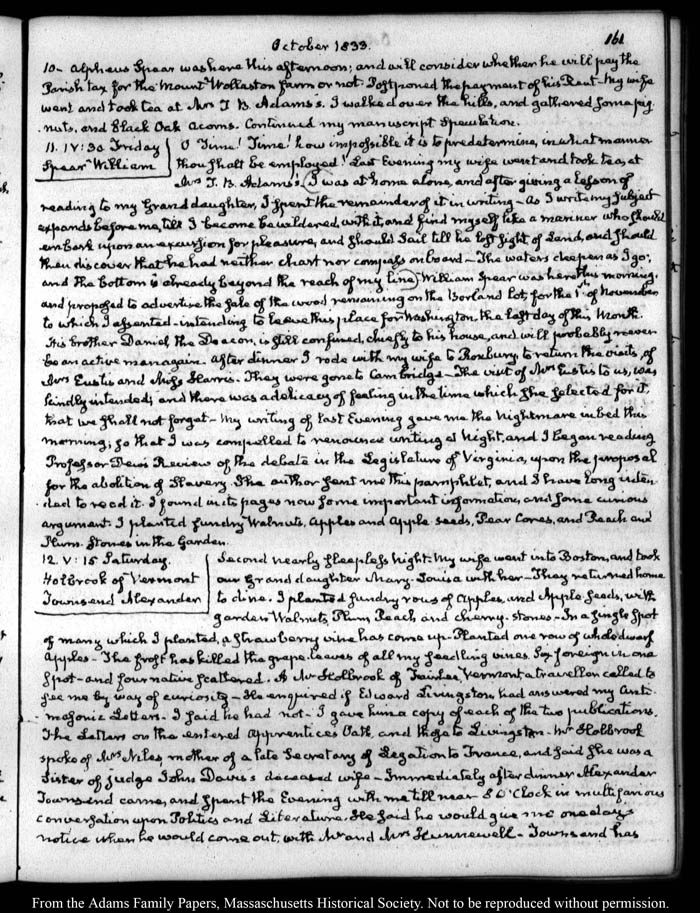 October 1833.
161
10 – Alpheus Spear was here this afternoon; and will consider whether he will pay the
Parish tax for the Mount Wollaston farm or not. Postponed the payment of his Rent – My wife
went and took tea at Mrs T. B. Adams's. I walked over the hills, and gathered some pig
nuts, and Black Oak Acorns. Continued my manuscript Speculation.
11. IV:30 Friday
Spear William
O Time! Time! how impossible it is to predetermine, in what manner
thou shalt be employed! Last Evening my wife went and took tea, at
Mrs T. B. Adams's, I was at home alone, and after giving a Lesson of
reading to my Grand daughter, I spent the remainder of it in writing – As I write my Subject
expands before me, till I become bewildered with it, and find myself like a mariner who should
embark upon an excursion for pleasure, and should sail till he lost sight of Land, and should
then discover that he had neither chart nor compass on board – The waters deepen as I go;
and the bottom is already beyond the reach of my line. William Spear was here this morning,
and proposed to advertise the sale of the wood remaining on the Borland lot, for the 1st of November
to which I assented – intending to leave this place for Washington the last day of this Month.
His brother Daniel the Deacon, is still confined, chiefly to his house, and will probably never
be an active man again. After dinner I rode with my wife to Roxbury to return the visits, of
Mrs Eustis and Miss Harris. They were gone to Cambridge – The visit of Mrs Eustis to us, was
kindly intended; and there was a delicacy of feeling in the time which she selected for it,
that we shall not forget – My writing of last Evening gave me the Nightmare in bed this
morning; so that I was compelled to renounce writing at Night, and I began reading
Professor Dew's Review of the debate in the Legislature of Virginia, upon the proposal
for the abolition of Slavery. The author sent me this pamphlet, and I have long inten
ded to read it. I found in its pages now some important information, and some curious
argument. I planted sundry Walnuts, Apples and Apple seeds, Pear Cores, and Peach and
Plum Stones in the Garden.
12. V:15 Saturday.
Holbrook of Vermont
Townsend Alexander
Second nearly sleepless night. My wife went into Boston, and took
our Grand daughter Mary-Louisa with her – They returned home
to dine. I planted sundry rows of Apples, and Apple seeds, with
garden Walnuts, Plum, Peach and Cherry-stones – In a single Spot
of many which I planted, a strawberry vine has come up. Planted one row of whole dwarf
Apples – The frost has killed the grape leaves of all my seedling vines. Six foreign in one
Spot – and four native scattered. A Mr Holbrook of Vermont a traveller called to
see me by way of curiosity – He enquired if Edward Livingston had answered my Anti-
masonic Letters. I said he had not – I gave him a copy of each of the two publications.
The Letters on the entered Apprentices Oath, and those to Livingston. Mr Holbrook
spoke of Mrs Niles, mother of a late Secretary of Legation to France, and said she was a
Sister of Judge John Davis's deceased wife – Immediately after dinner Alexander
Townsend came, and spent the Evening with me till near 8 O'Clock in multifarious
conversation upon Politics and Literature. He said he would give me one day's
notice when he would come out, with Mr and Mrs Hunnewell – Townsend has
From the Adams Family Papers, Massachusetts Historical Society. Not to be reproduced without permission.